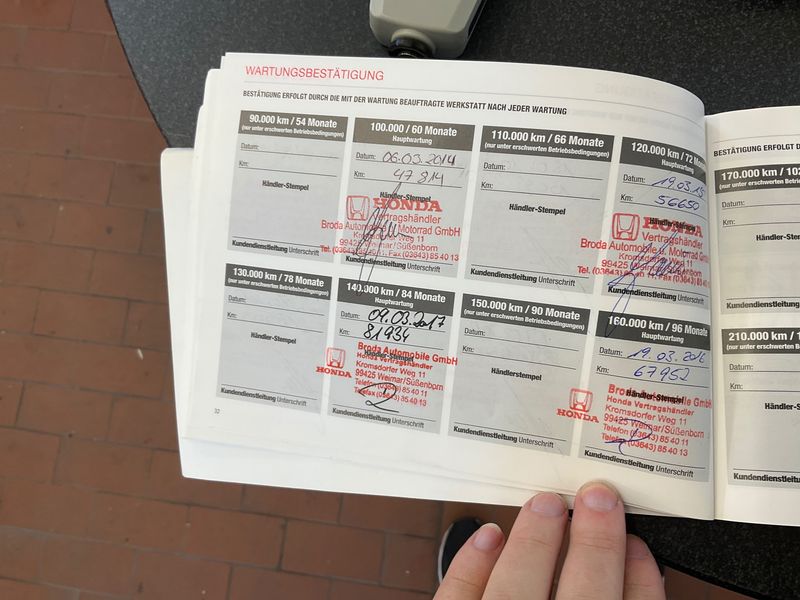 WARTUNGSBESTÄTIGUNG
BESTÄTIGUNG ERFOLGT DURCH DIE MIT DER WARTUNG BEAUFTRAGTE WERKSTATT NACH JEDER WARTUNG
90.000 km / 54 Monate
(nur unter erschwerten Betriebsbedingungen)
Datum:
Km:
Händler-Stempel
Kundendienstleitung Unterschrift
100.000 / 60 Monate
Hauptwartung
Datum: 06.03.2014
Km: 47 814
Händler-Stempel
HONDA
Vertragshändler
Broda Automobile u. Motorrad GmbH
Kromsdorfer Weg 11
99425 Weimar/Süßenborn
Tel. (03643) 85 40 11, Fax (03643) 85 40 13
Kundendienstleitung Unterschrift
110.000 km / 66 Monate
(nur unter erschwerten Betriebsbedingungen)
Datum:
Km:
Händler-Stempel
Kundendienstleitung Unterschrift
120.000 km / 72 Monate
Hauptwartung
Datum: 19.03.15
Km: 56650
Händler-Stempel
HONDA
Vertragshändler
Broda Automobile u. Motorrad GmbH
Kromsdorfer Weg 11
99425 Weimar/Süßenborn
Tel. (03643) 85 40 11, Fax (03643) 85 40 13
Kundendienstleitung Unterschrift
130.000 km / 78 Monate
(nur unter erschwerten Betriebsbedingungen)
Datum:
Km:
Händler-Stempel
Kundendienstleitung Unterschrift
140.000 km / 84 Monate
Hauptwartung
Datum: 09.03.2017
Km: 81934
Händler-Stempel
HONDA
Broda Automobile GmbH
Honda Vertragshändler
Kromsdorfer Weg 11
99425 Weimar/Süßenborn
Telefon (03643) 85 40 11
Telefax (03643) 85 40 13
Kundendienstleitung Unterschrift
150.000 km / 90 Monate
(nur unter erschwerten Betriebsbedingungen)
Datum:
Km:
Händlerstempel
Kundendienstleitung Unterschrift
160.000 km / 96 Monate
Hauptwartung
Datum: 19.03.2016
Km: 67952
Händler-Stempel
HONDA
Broda Automobile GmbH
Honda Vertragshändler
Kromsdorfer Weg 11
99425 Weimar/Süßenborn
Telefon (03643) 85 40 11
Telefax (03643) 85 40 13
Kundendienstleitung Unterschrift
32
BESTÄTIGUNG ERFOLGT D
170.000 km / 102
(nur unter erschwerten Be
Datum:
Km:
Händler-S
Kundendienstleitung
210.000 km / 1
(nur unter erschwerten
Datum:
Km:
Händler-
Kundendienstleitung U